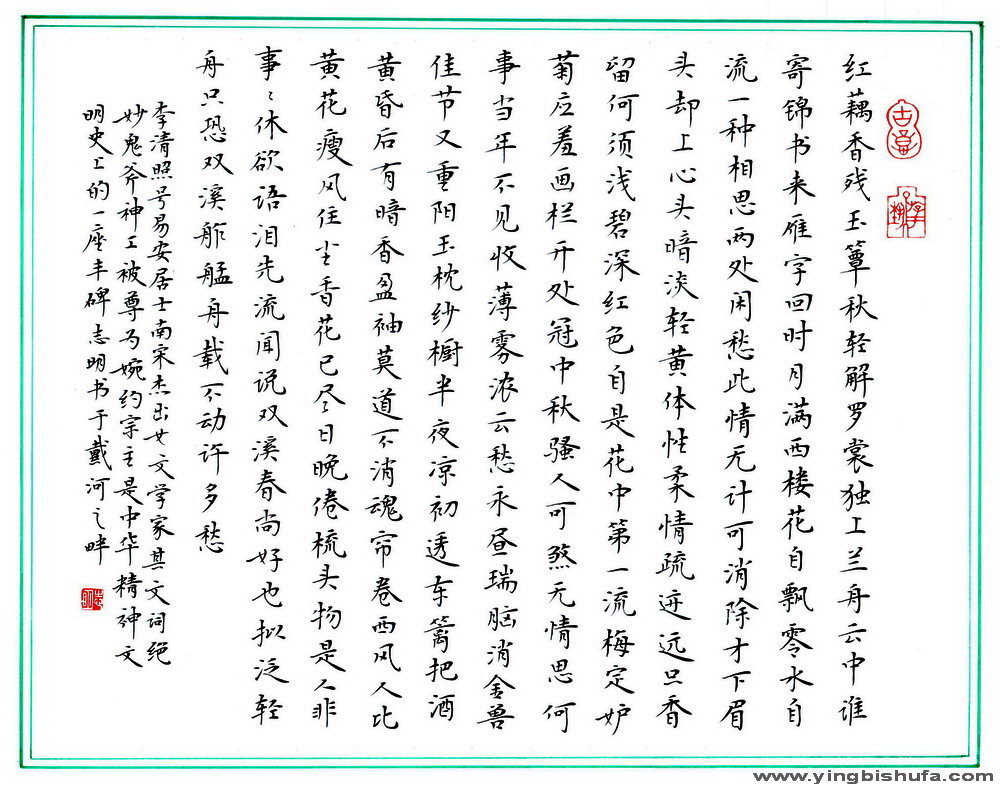 红藕香残玉簟秋轻解罗裳独上兰舟云中谁
寄锦书来雁字回时月满西楼花自飘零水自
流一种相思两处闲愁此情无计可消除才下眉
头却上心头暗淡轻黄体性柔情疏迹远只香
留何须浅碧深红色自是花中第一流梅定妒
菊应羞画栏开处冠中秋骚人可煞无情思何
事当年不见收薄雾浓云愁永昼瑞脑消金兽
佳节又重阳玉枕纱橱半夜凉初透东篱把酒
黄昏后有暗香盈袖莫道不消魂帘卷西风人比
黄花瘦风住尘香花已尽日晚倦梳头物是人非
事〻休欲语泪先流闻说双溪春尚好也拟泛轻
舟只恐双溪舴艋舟载不动许多愁
李清照号易安居士南宋杰出女文学家其文词绝
妙鬼斧神工被尊为婉约宗主是中华精神文
明史上的一座丰碑 志明书于戴河之畔
www.yingbishufa.com